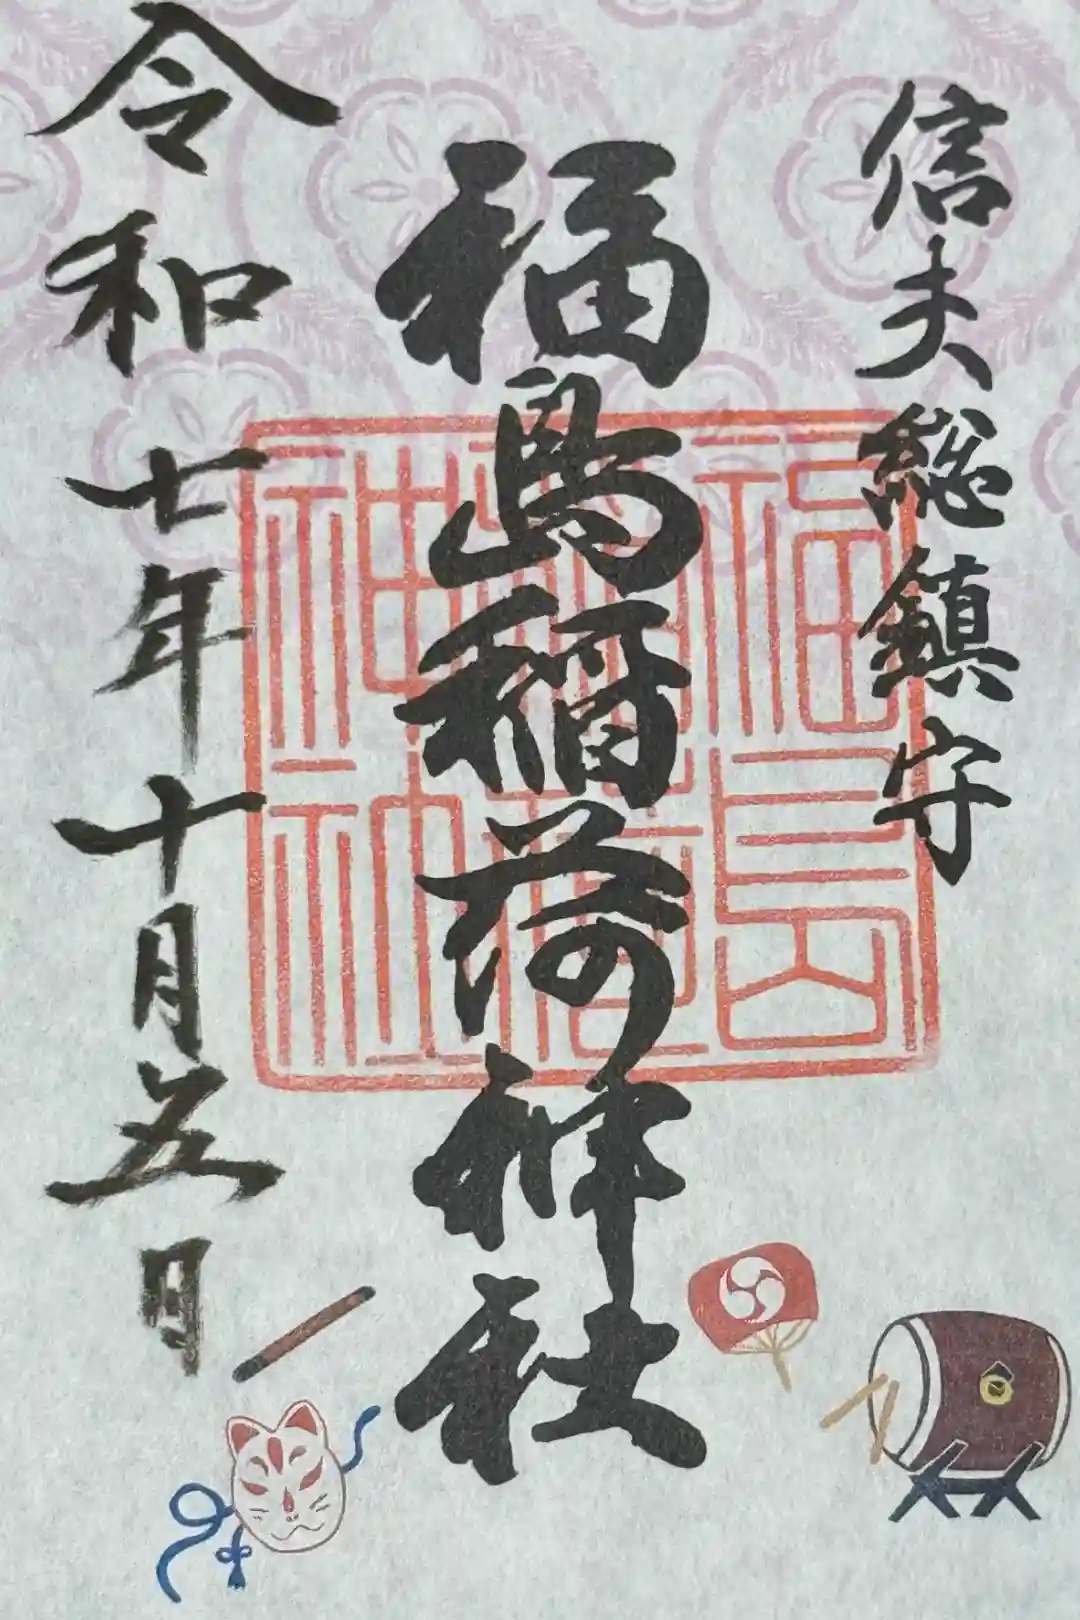 信夫総鎮守
福島稲荷神社
福島
稲荷
神社
令和七年十月五日